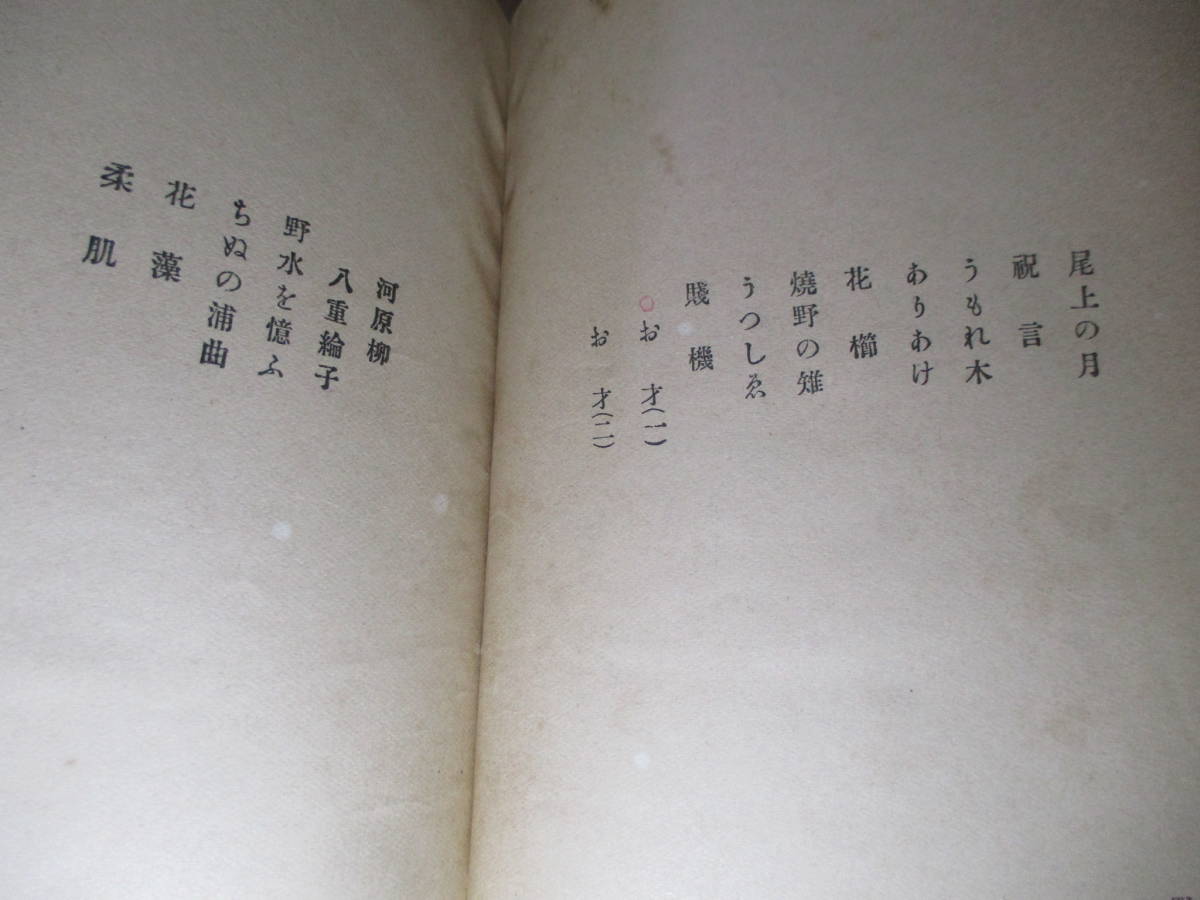 尾上の月
祝言
うもれ木
ありあけ
花櫛
燒野の雉
うつしゑ
賤機
お才(一)
お才(二)
河原柳
八重綸子
野水を憶ふ
ちぬの浦曲
花藻
柔肌